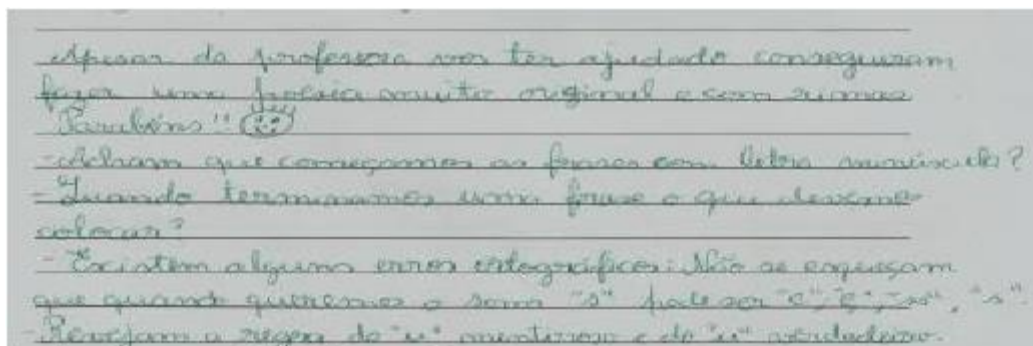 Apesar da professora vos ter ajudado conseguiram
fazer uma poesia muito original e com rimas
Parabéns!!
- Acham que começamos as frases com letra minúscula?
- Quando terminamos uma frase o que devemos
colocar?
- Existem alguns erros ortográficos: Não se esqueçam
que quando queremos o som "s" pode ser "c", "ç", "ss", "s"
- Revejam a regra do "u" mentiroso e do "u" verdadeiro.